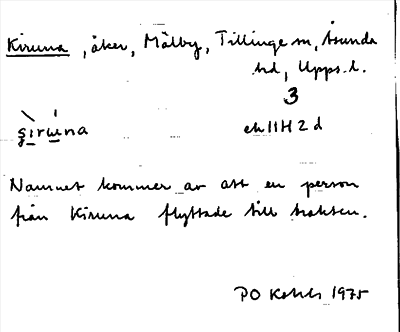 Kiruna, åker, Mälby, Tillinge sn, Åsunda
hd, Upps. l.
3
ek 11H 2d
Namnet kommer av att en person
från Kiruna flyttade till trakten.
PO 1975